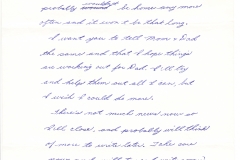 probably wouldn't be home any more
often and it won't be that long.
I want you to tell Mom & Dad
the same and that I hope things
are working out for Dad. I'll try
and help them out all I can, but
I wish I could do more.
There's not much news now so
I'll close, and probably will think
of more to write later. Take care